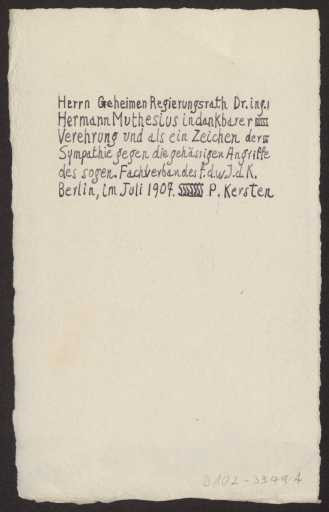 Herrn Geheimen Regierungsrath Dr. ing.
Hermann Muthesius in dankbarer
Verehrung und als ein Zeichen der
Sympathie gegen die gehässigen Angriffe
des sogen. Fachverbandes f. d. w. J. d. K.
Berlin, im Juli 1907. P. Kersten
D102-3349 A